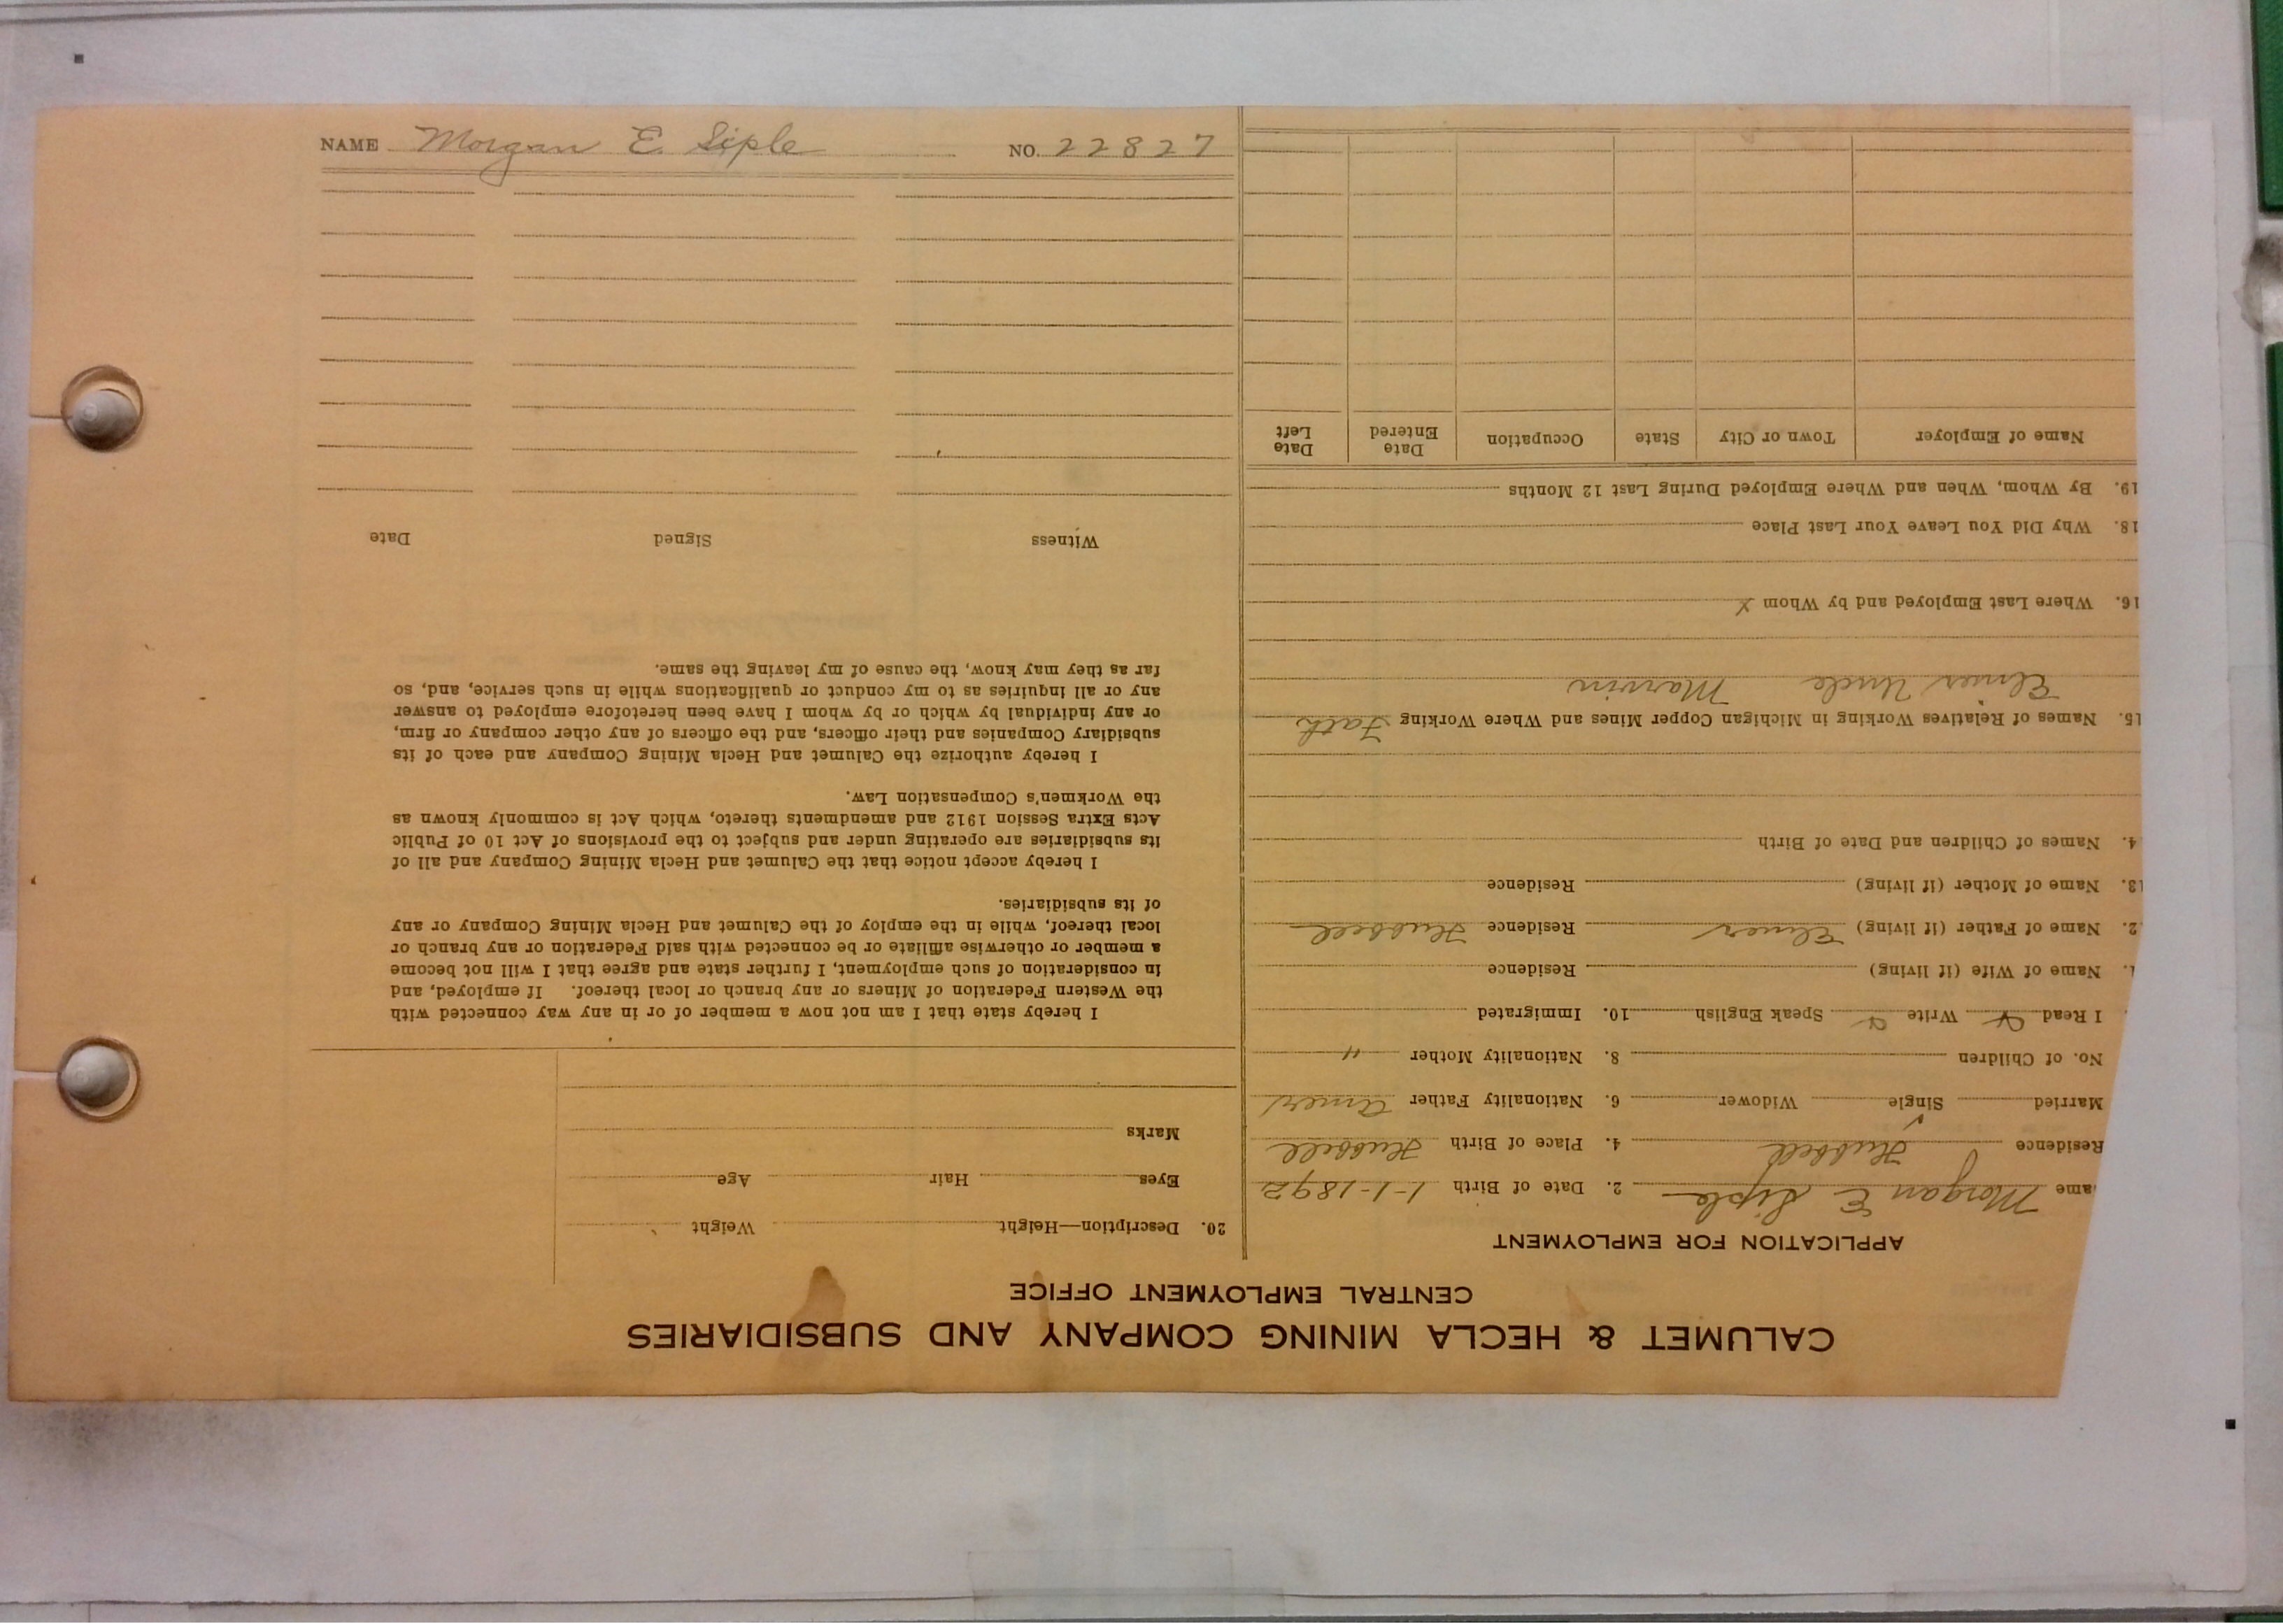 NAME Morgan E. Siple NO. 22827
CALUMET & HECLA MINING COMPANY AND SUBSIDIARIES
CENTRAL EMPLOYMENT OFFICE
APPLICATION FOR EMPLOYMENT
ame Morgan E Siple 2. Date of Birth 1-1-1892
Residence Hubbell 4. Place of Birth Hubbell
Married Single ✓ Widower 6. Nationality Father Amer
No. of Children 8. Nationality Mother "
I Read Write Speak English 10. Immigrated
1. Name of Wife (if living) Residence
2. Name of Father (if living) Elmer Residence Hubbell
13. Name of Mother (if living) Residence
4. Names of Children and Date of Birth
15. Names of Relatives Working in Michigan Copper Mines and Where Working Fath
Elmer Uncle Marvin
16. Where Last Employed and by Whom x
18. Why Did You Leave Your Last Place
19. By Whom, When and Where Employed During Last 12 Months
Name of Employer Town or City State Occupation Date Entered Date Left
20. Description—Height Weight
Eyes Hair Age
Marks
I hereby state that I am not now a member of or in any way connected with
the Western Federation of Miners or any branch or local thereof. If employed, and
in consideration of such employment, I further state and agree that I will not become
a member or otherwise affiliate or be connected with said Federation or any branch or
local thereof, while in the employ of the Calumet and Hecla Mining Company or any
of its subsidiaries.
I hereby accept notice that the Calumet and Hecla Mining Company and all of
its subsidiaries are operating under and subject to the provisions of Act 10 of Public
Acts Extra Session 1912 and amendments thereto, which Act is commonly known as
the Workmen's Compensation Law.
I hereby authorize the Calumet and Hecla Mining Company and each of its
subsidiary Companies and their officers, and the officers of any other company or firm,
or any individual by which or by whom I have been heretofore employed to answer
any or all inquiries as to my conduct or qualifications while in such service, and, so
far as they may know, the cause of my leaving the same.
Witness Signed Date